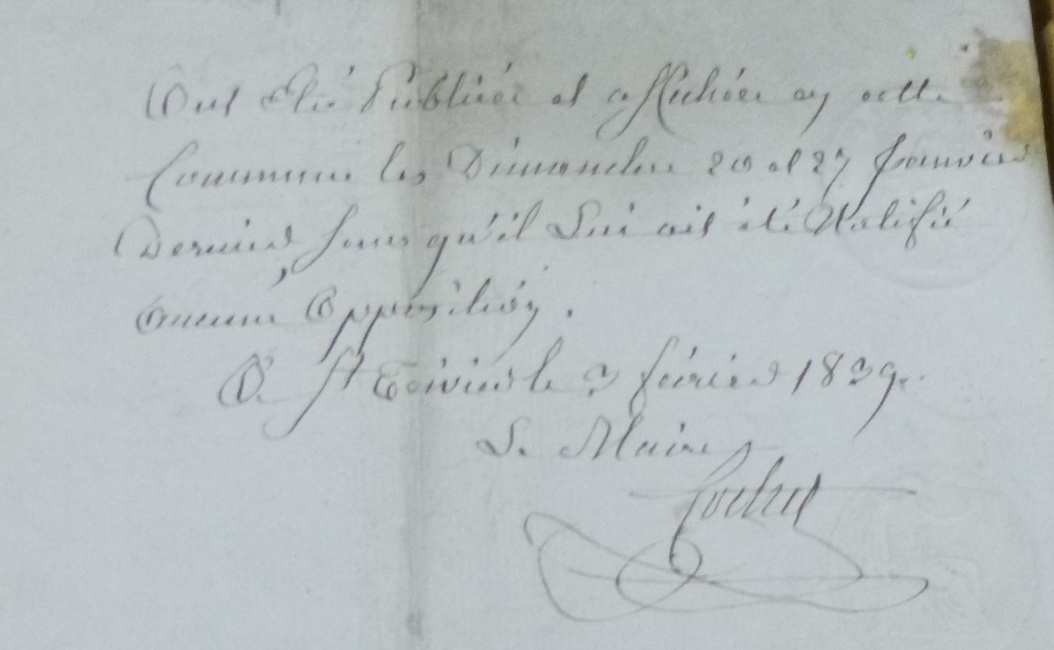 Ont Eté Publiées et affichées en cette
Commune les Dimanches 20 et 27 Janvier
Dernier, sans qu'il Lui ait été Notifié
aucune Opposition.
A St le 3 février 1839.
Le Maire